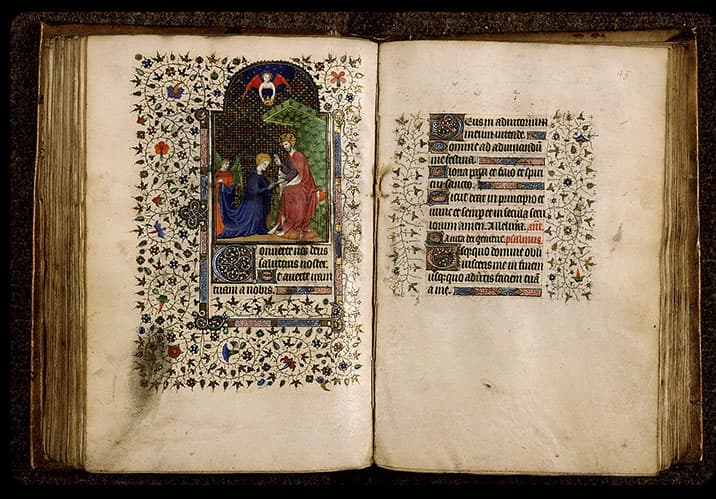 Conuerte nos deus
salutaris noster.
Et auerte iram
tuam a nobis.
95
Deus in adiutorium
meum intende.
Domine ad adiuuandū
me festina.
Gloria patri et filio et spiri
tui sancto.
Sicut erat in principio et
nunc et semper et in secula secu
lorum amen. Alleluia. ant.
Sancta dei genitrix. psalmus.
Usquequo domine obli
uisceris me in finem
usquequo aduertis faciem tuā
a me.